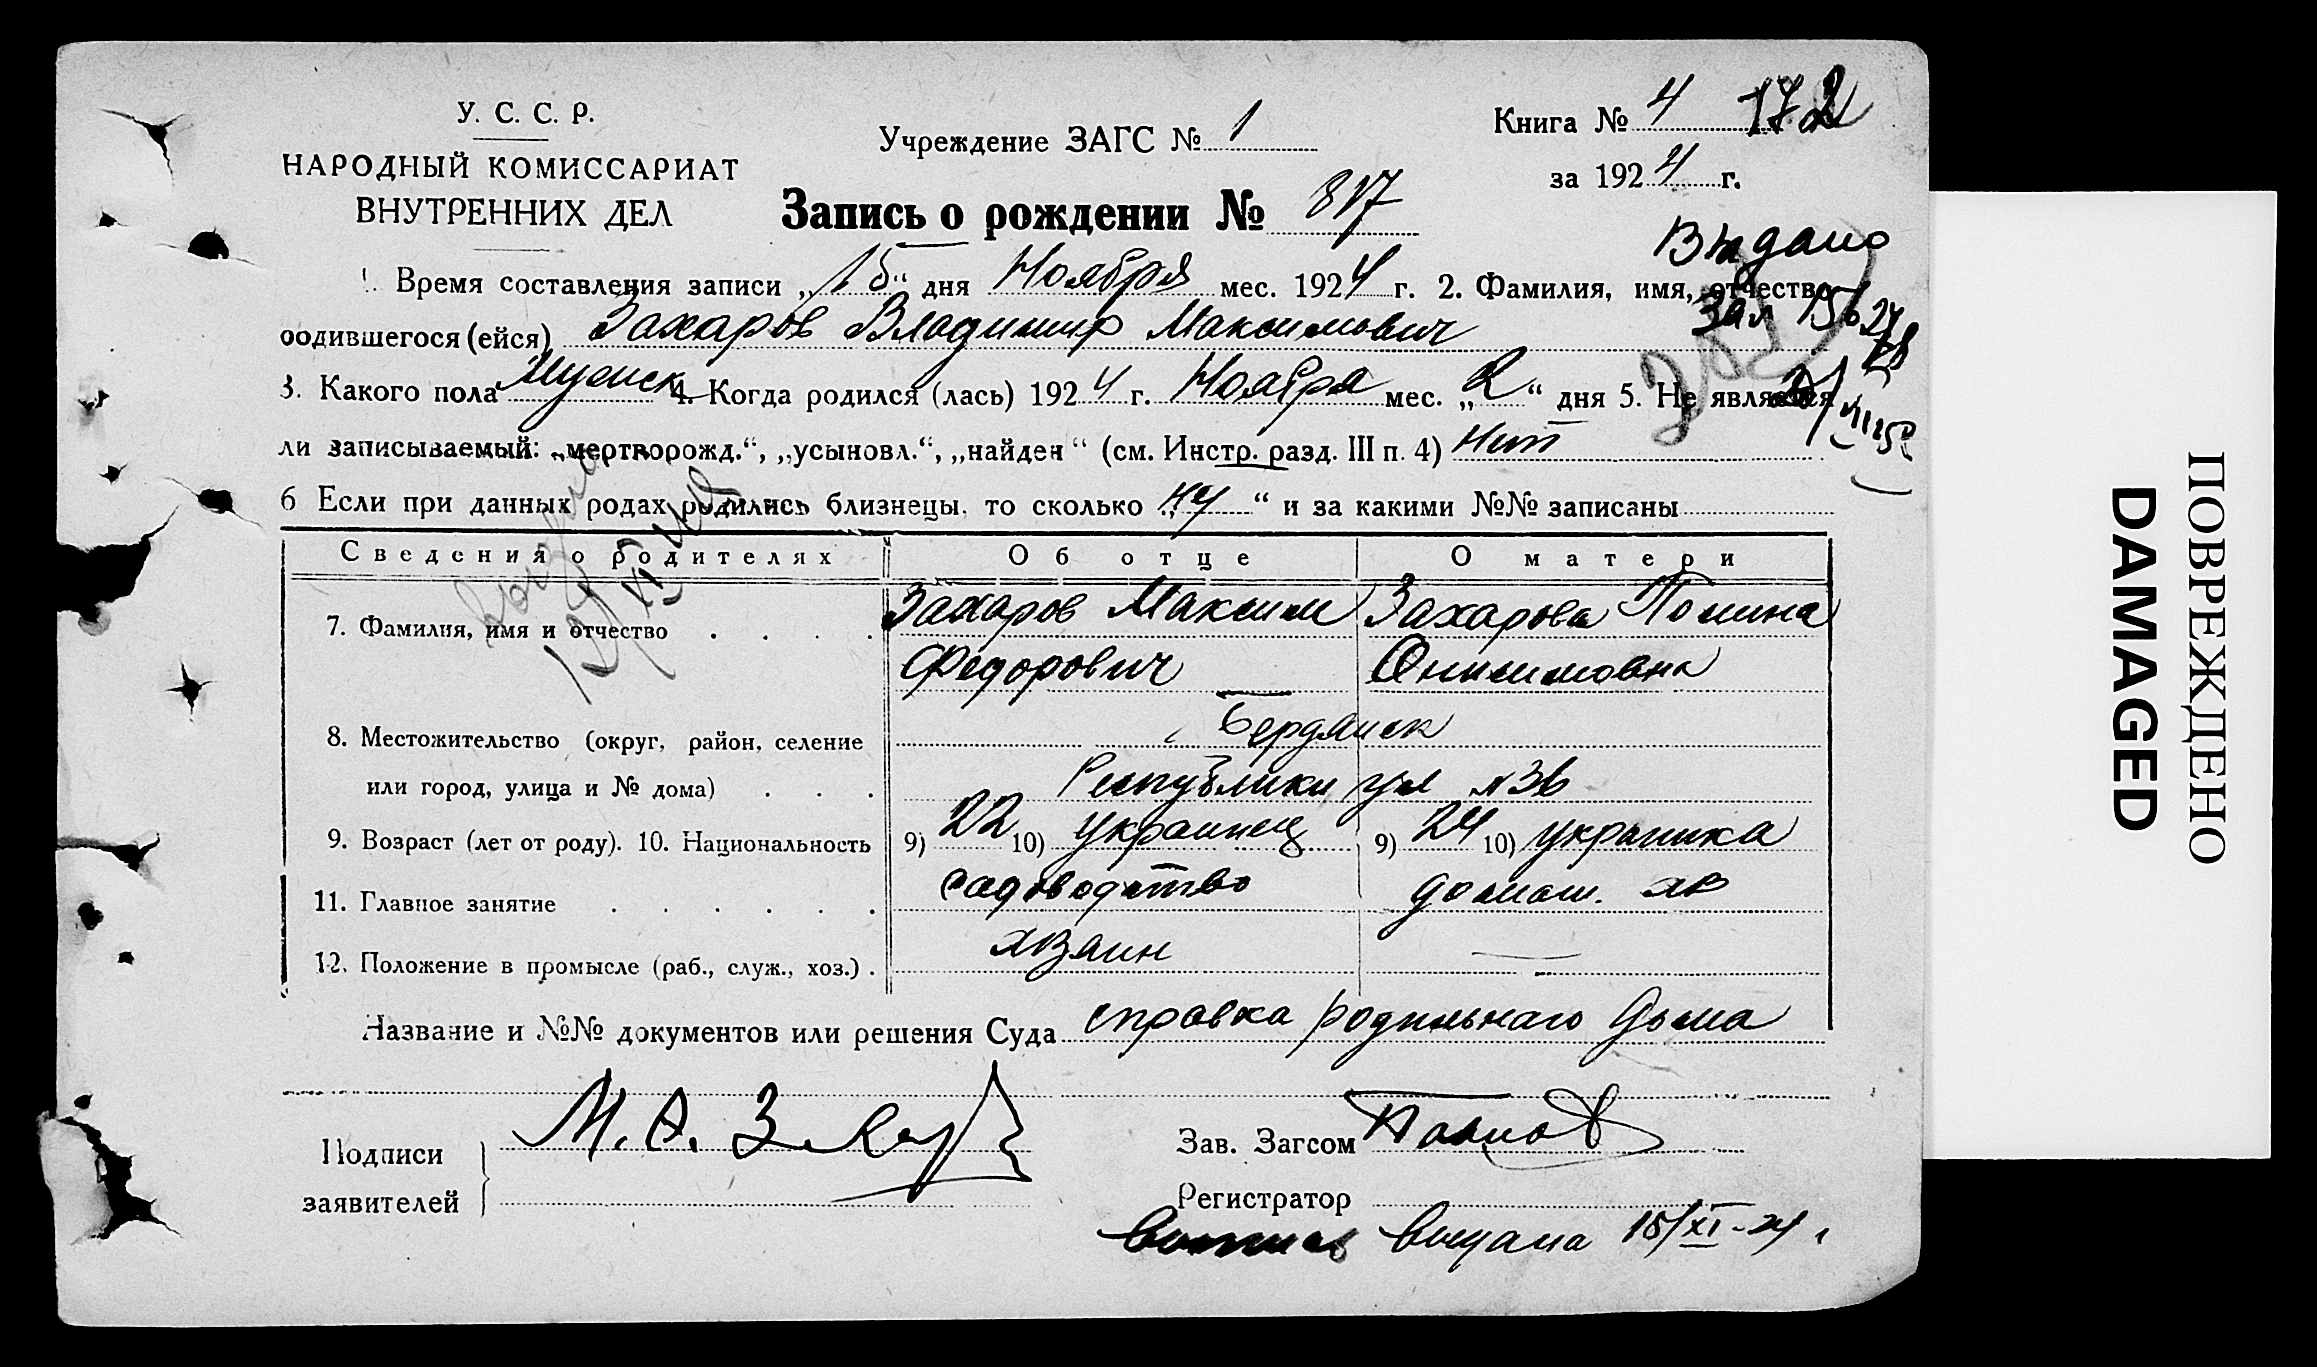 У. С. С. Р.
НАРОДНЫЙ КОМИССАРИАТ
ВНУТРЕННИХ ДЕЛ
Учреждение ЗАГС № 1
Книга № 4 172
за 1924 г.
Запись о рождении № 817
Выдано
1. Время составления записи „15“ дня Ноября мес. 1924 г. 2. Фамилия, имя, отчество
родившегося (ейся) Захаров Владимир Максимович
3. Какого пола Мужск 4. Когда родился (лась) 1924 г. Ноября мес. „2“ дня 5. Не является
ли записываемый: „мертворожд.“, „усыновл.“, „найден“ (см. Инстр. разд. III п. 4) Нет
6 Если при данных родах родились близнецы, то сколько „ “ и за какими №№ записаны
Сведения о родителях Об отце О матери
7. Фамилия, имя и отчество Захаров Максим Захарова Полина
Федорович Онисимовна
8. Местожительство (округ, район, селение Бердянск
или город, улица и № дома) Республики ул
9. Возраст (лет от роду). 10. Национальность 9) 22 10) украинец 9) 24 10) украинка
11. Главное занятие садоводство домаш. хв
12. Положение в промысле (раб., служ., хоз.) хвзяин —
Название и №№ документов или решения Суда справка родильнаго дома
Подписи
заявителей
М.
Зав. Загсом
Регистратор
выпись выдана 15/XI-24 г
ПОВРЕЖДЕНО
DAMAGED